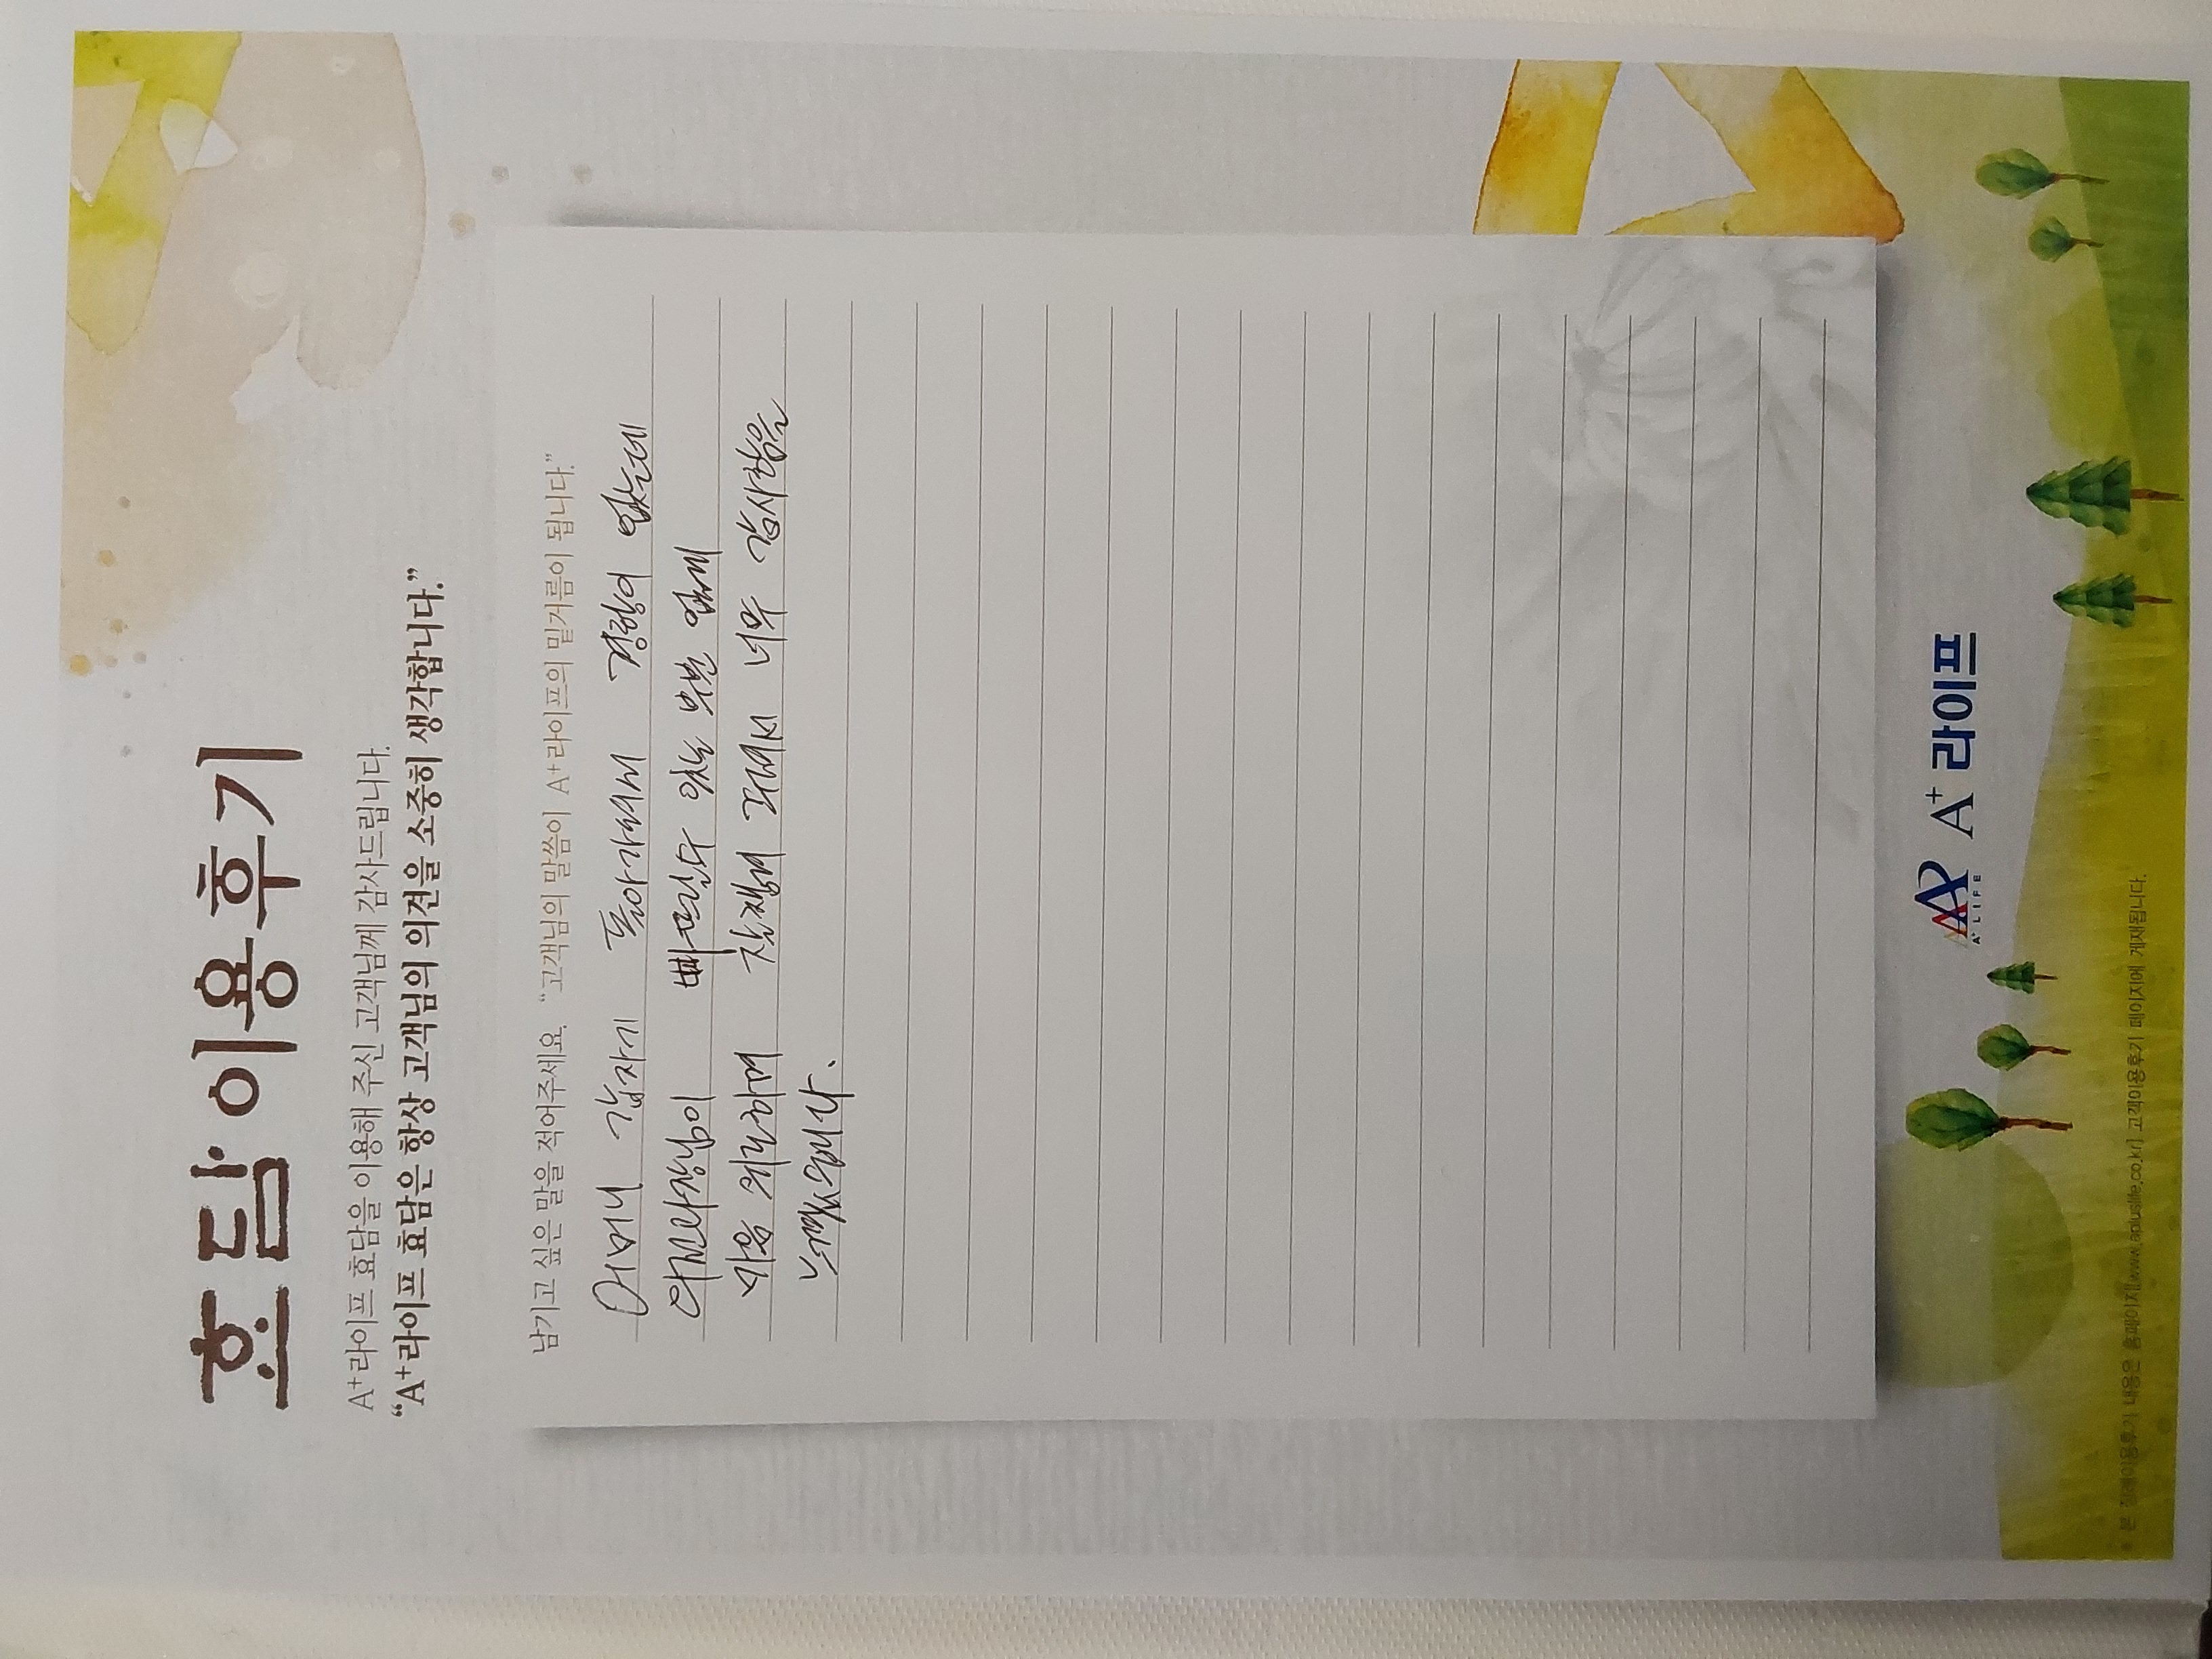 효담 이용후기
A⁺라이프 효담을 이용해 주신 고객님께 감사드립니다.
“A⁺라이프 효담은 항상 고객님의 의견을 소중히 생각합니다.”
남기고 싶은 말을 적어주세요. “고객님의 말씀이 A⁺라이프의 밑거름이 됩니다.”
어머니 갑자기 돌아가셔서 경황이 없는데
빠뜨릴수 있는 부분 없게
사용 의논하며 잘챙겨 주셔서 너무 감사함을
느꼈습니다.
A⁺ LIFE A⁺ 라이프
* 본 장례이용후기 내용은 홈페이지[www.apluslife.co.kr] 고객이용후기 페이지에 게재됩니다.